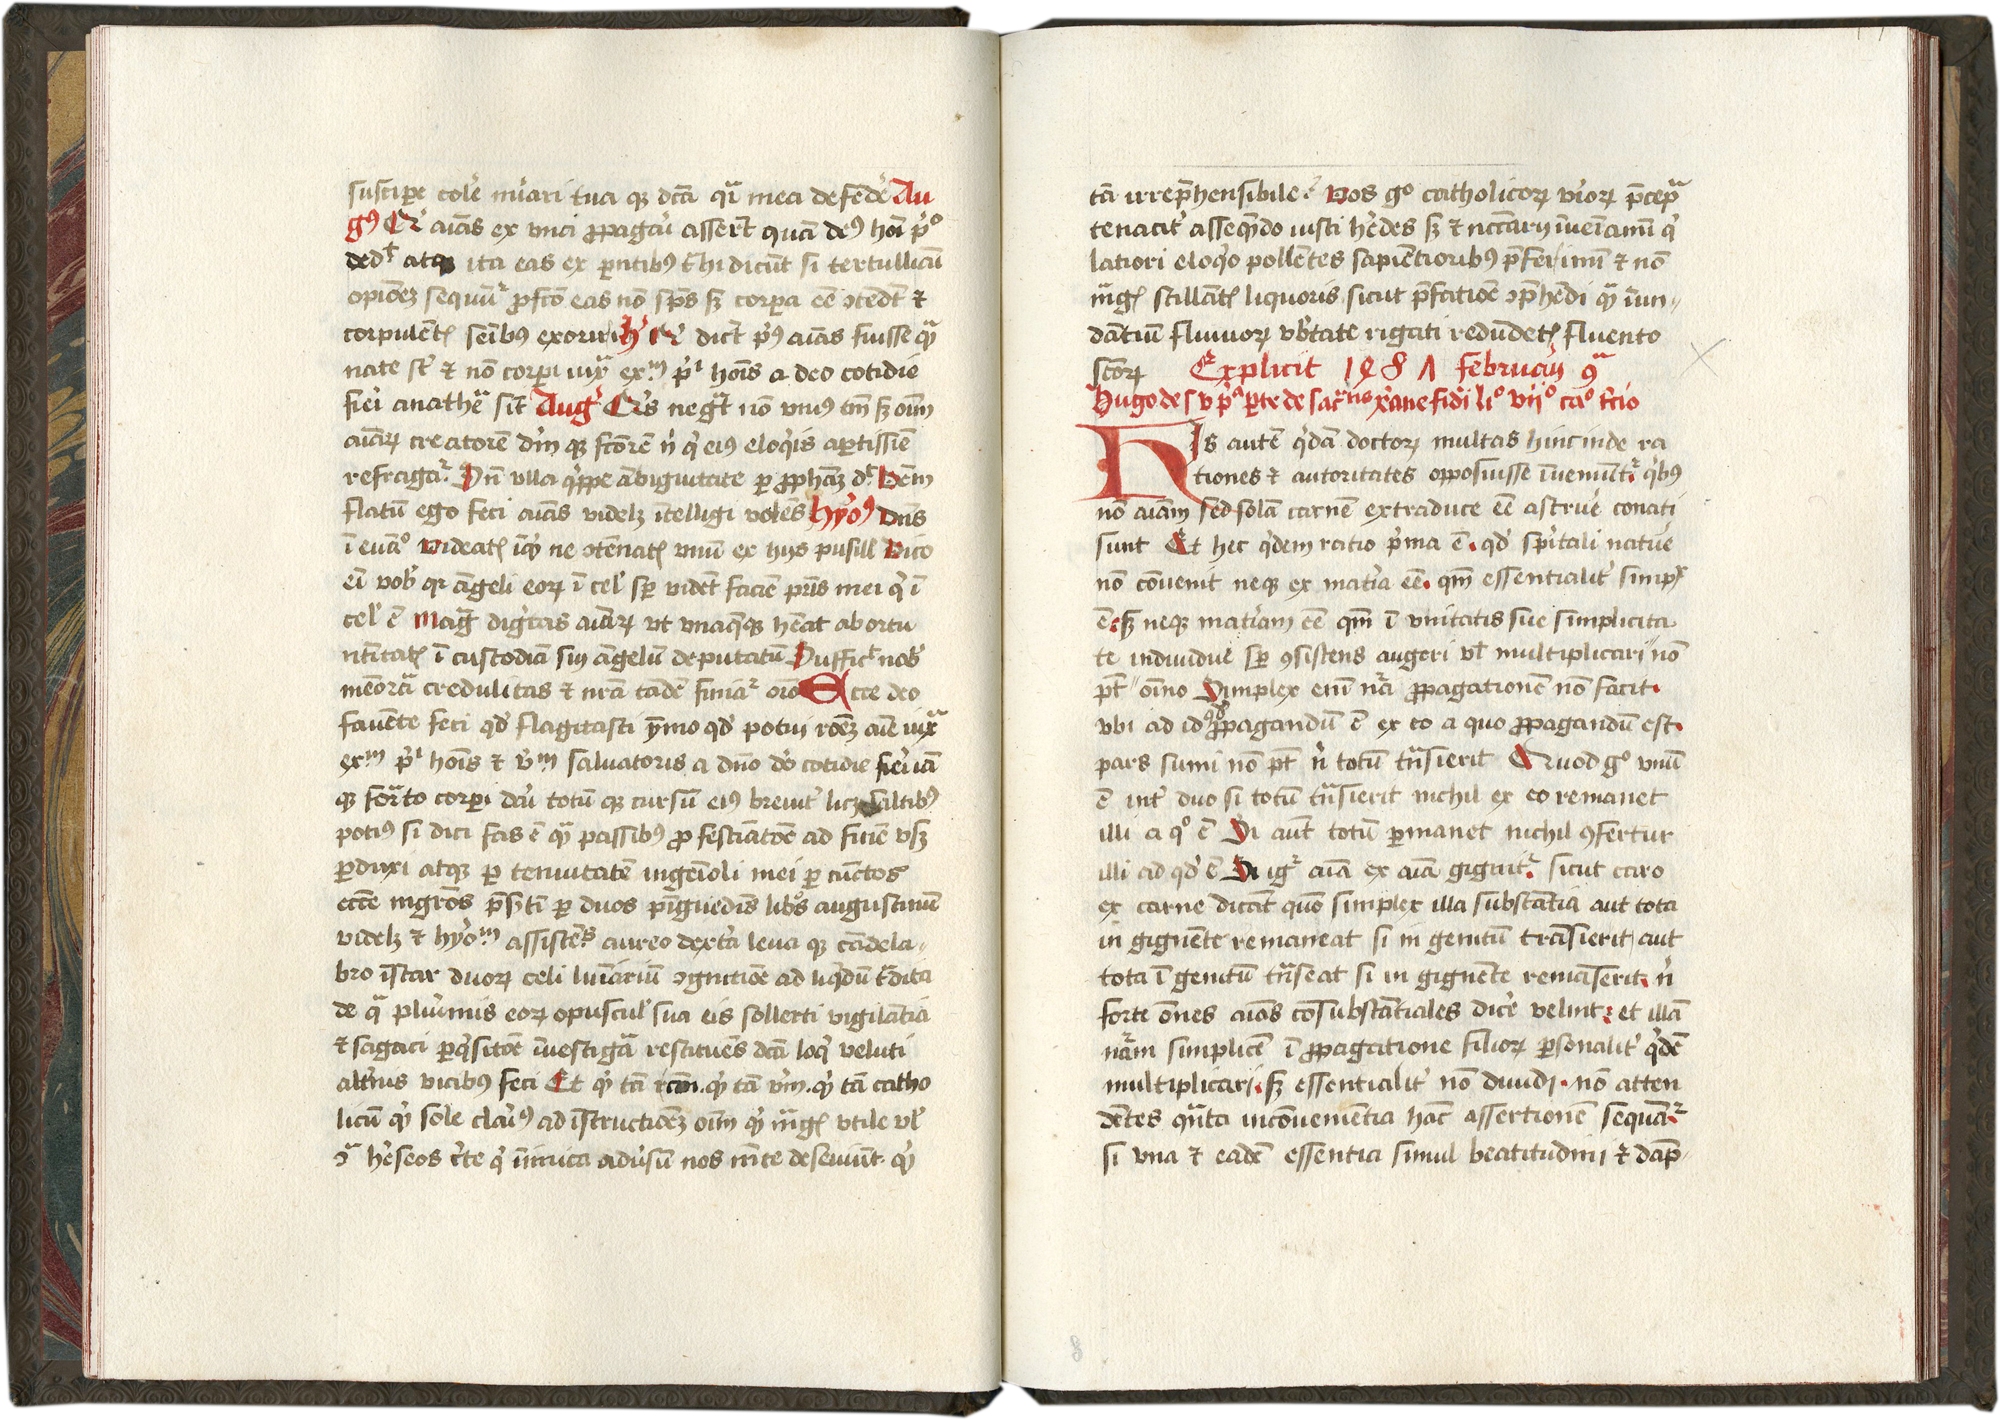 suscipe colē mīari tua qz dcā qr̄ mea defēdē Au
gꝰ Er̄ aīas ex vna ꝓpagaī assert quā deꝰ hoī pͥo
dedt atqz ita eas ex parētibꝰ t̄hi dicūt si tertulliani
opiōez sequūr ꝓfcō eas nō spūs sz corpa eē ↄtēdt ⁊
corpulēt seībꝰ exoriri hꝰ Er̄ dict pͥꝰ aīas fuisse qͣ
nate st̄ ⁊ nō corpi iuxͣ exm pͥi hoīs a deo cotidie
fieri anathēa sit Augꝰ Er̄s negt nō vnꝰ tm̄ sz oīm
aīaꝝ creatorē dm̄ qz fcōrē n̄ qͥ eiꝰ eloqͥis aptissīe
refragar Dn̄ vlla qͥppe ābiguitate ꝑ ꝓphāz dt Oēm
flatū ego feci aīas videlz ītelligi volēs hyoꝰ Dn̄s
ī euāo videate īqͥ ne ↄtēnate vnū ex hys pusill Dico
eī vob qꝛ āgeli eoꝝ ī cel sꝑ vidēt faciē pr̄is mei qͥ ī
cel ē Magͣ digͥtas aīaꝝ vt vnaqͣqz hēat ab ortu
nītitate ī custodiā sui āgelū deputatū Suffict nob
mēorā credulitas ⁊ nr̄a tādē finiar̄ orō Ecce deo
fauēte feci qd flagitasti ymo qd potui rōez aīe iuxͣ
exm pͥi hoīs ⁊ v̄m saluatoris a dn̄o do cotidie fieri iā
qz formͣto corpi dcū totū qz cursū eiꝰ breuit licz saltibꝰ
potiꝰ si dici fas ē qͣ passibꝰ ꝓ festīatōe ad finē vsz
ꝑduxi atqz ꝑ tenuitatē ingēioli mei ꝑ cūctos
ecce mgros p̄sztī ꝑ duos pīguedīs libos augustinū
videlz ⁊ hyom assistēs aureo dextͣ leua qz cādela-
bro īstar duoꝝ celi luīariū ↄgnitiōe ad liqͥdū tͣdita
de qͣ plurimis eoꝝ opuscul sua eis sollerti vigilātia
⁊ sagaci ꝑqͥsitōe īuestigā restituēs dcā loqͥ veluti
altnis vicibꝰ feci Et qͣ tā rcām. qͣ tā vm̄. qͣ tā catho
licū qͣ sole clariꝰ ad īstructiōez oīm qͣ mͣge vtile vl
ↄͣ heseos cte qͥ īimica adusū nos mēte deseuiūt qͣ
tā irrep̄hensibile? Vos go catholicoꝝ viroꝝ p̄ceptͣ
tenacit asseqͥndo iusti hēdes sz ⁊ nccāry īueīamī qͥ
latiori eloqͥo pollētes sapiētioribꝰ p̄ferimī ⁊ nō
mͣge stillāte liquoris sicut p̄fatiōe ↄp̄hēdi qͣ īun-
dātiū fluuioꝝ vbtate rigati redūdete fluento
scōꝝ Explicit 1481 februarii 9ͣ
Hugo de S vͥ pͣ ꝑte de sacͣtis xͥane fidi lio viio cao tcio
His autē qͦdā doctoꝝ multas hinc inde ra
tiones ⁊ autoritates opposuisse īueniūtr qͥbꝰ
nō aīam sed solā carnē extraduce eē astruē conati
sunt Et hec qͥdem ratio pͥma ē. qd spͥitali natuē
nō cōuenit neqz ex matͥia eē. qm̄ essentialit simpx
ē. sz neqz matͥiam eē qm̄ ī vnitatis sue simplicita
te indiuidue sꝑ ꝯsistens augeri vl multiplicari nō
pt oīno Simplex enī nͣ ꝓpagationē nō facit.
vbi ad id ꝓpagandū ē ex eo a quo ꝓpagandū est.
pars sumi nō pt n̄ totū trͣsierit Quod go vnū
ē int duo si totū trͣsierit nichil ex eo remanet
illi a qo ē Si aūt totū ꝑmanet nichil ꝯfertur
illi ad qd ē Si igr aīa ex aīa gignitr. sicut caro
ex carne dicāt quō simplex illa substātia aut tota
in gignēte remaneat si in genitū trāsierit aut
tota ī genitū trͣseat si in gignēte remāserit. n̄
forte ōnes aīas cōsubstātiales dicē velint. et illā
nāͣm simplicē ī ꝓpagatione filioꝝ ꝑsonalit qͥdē
multiplicari. sz essentialit nō diuidi. nō atten
dētes quāta incōuenientia hāc assertionē sequātr
si vna ⁊ eadē essentia simul beatitudini ⁊ dāp-